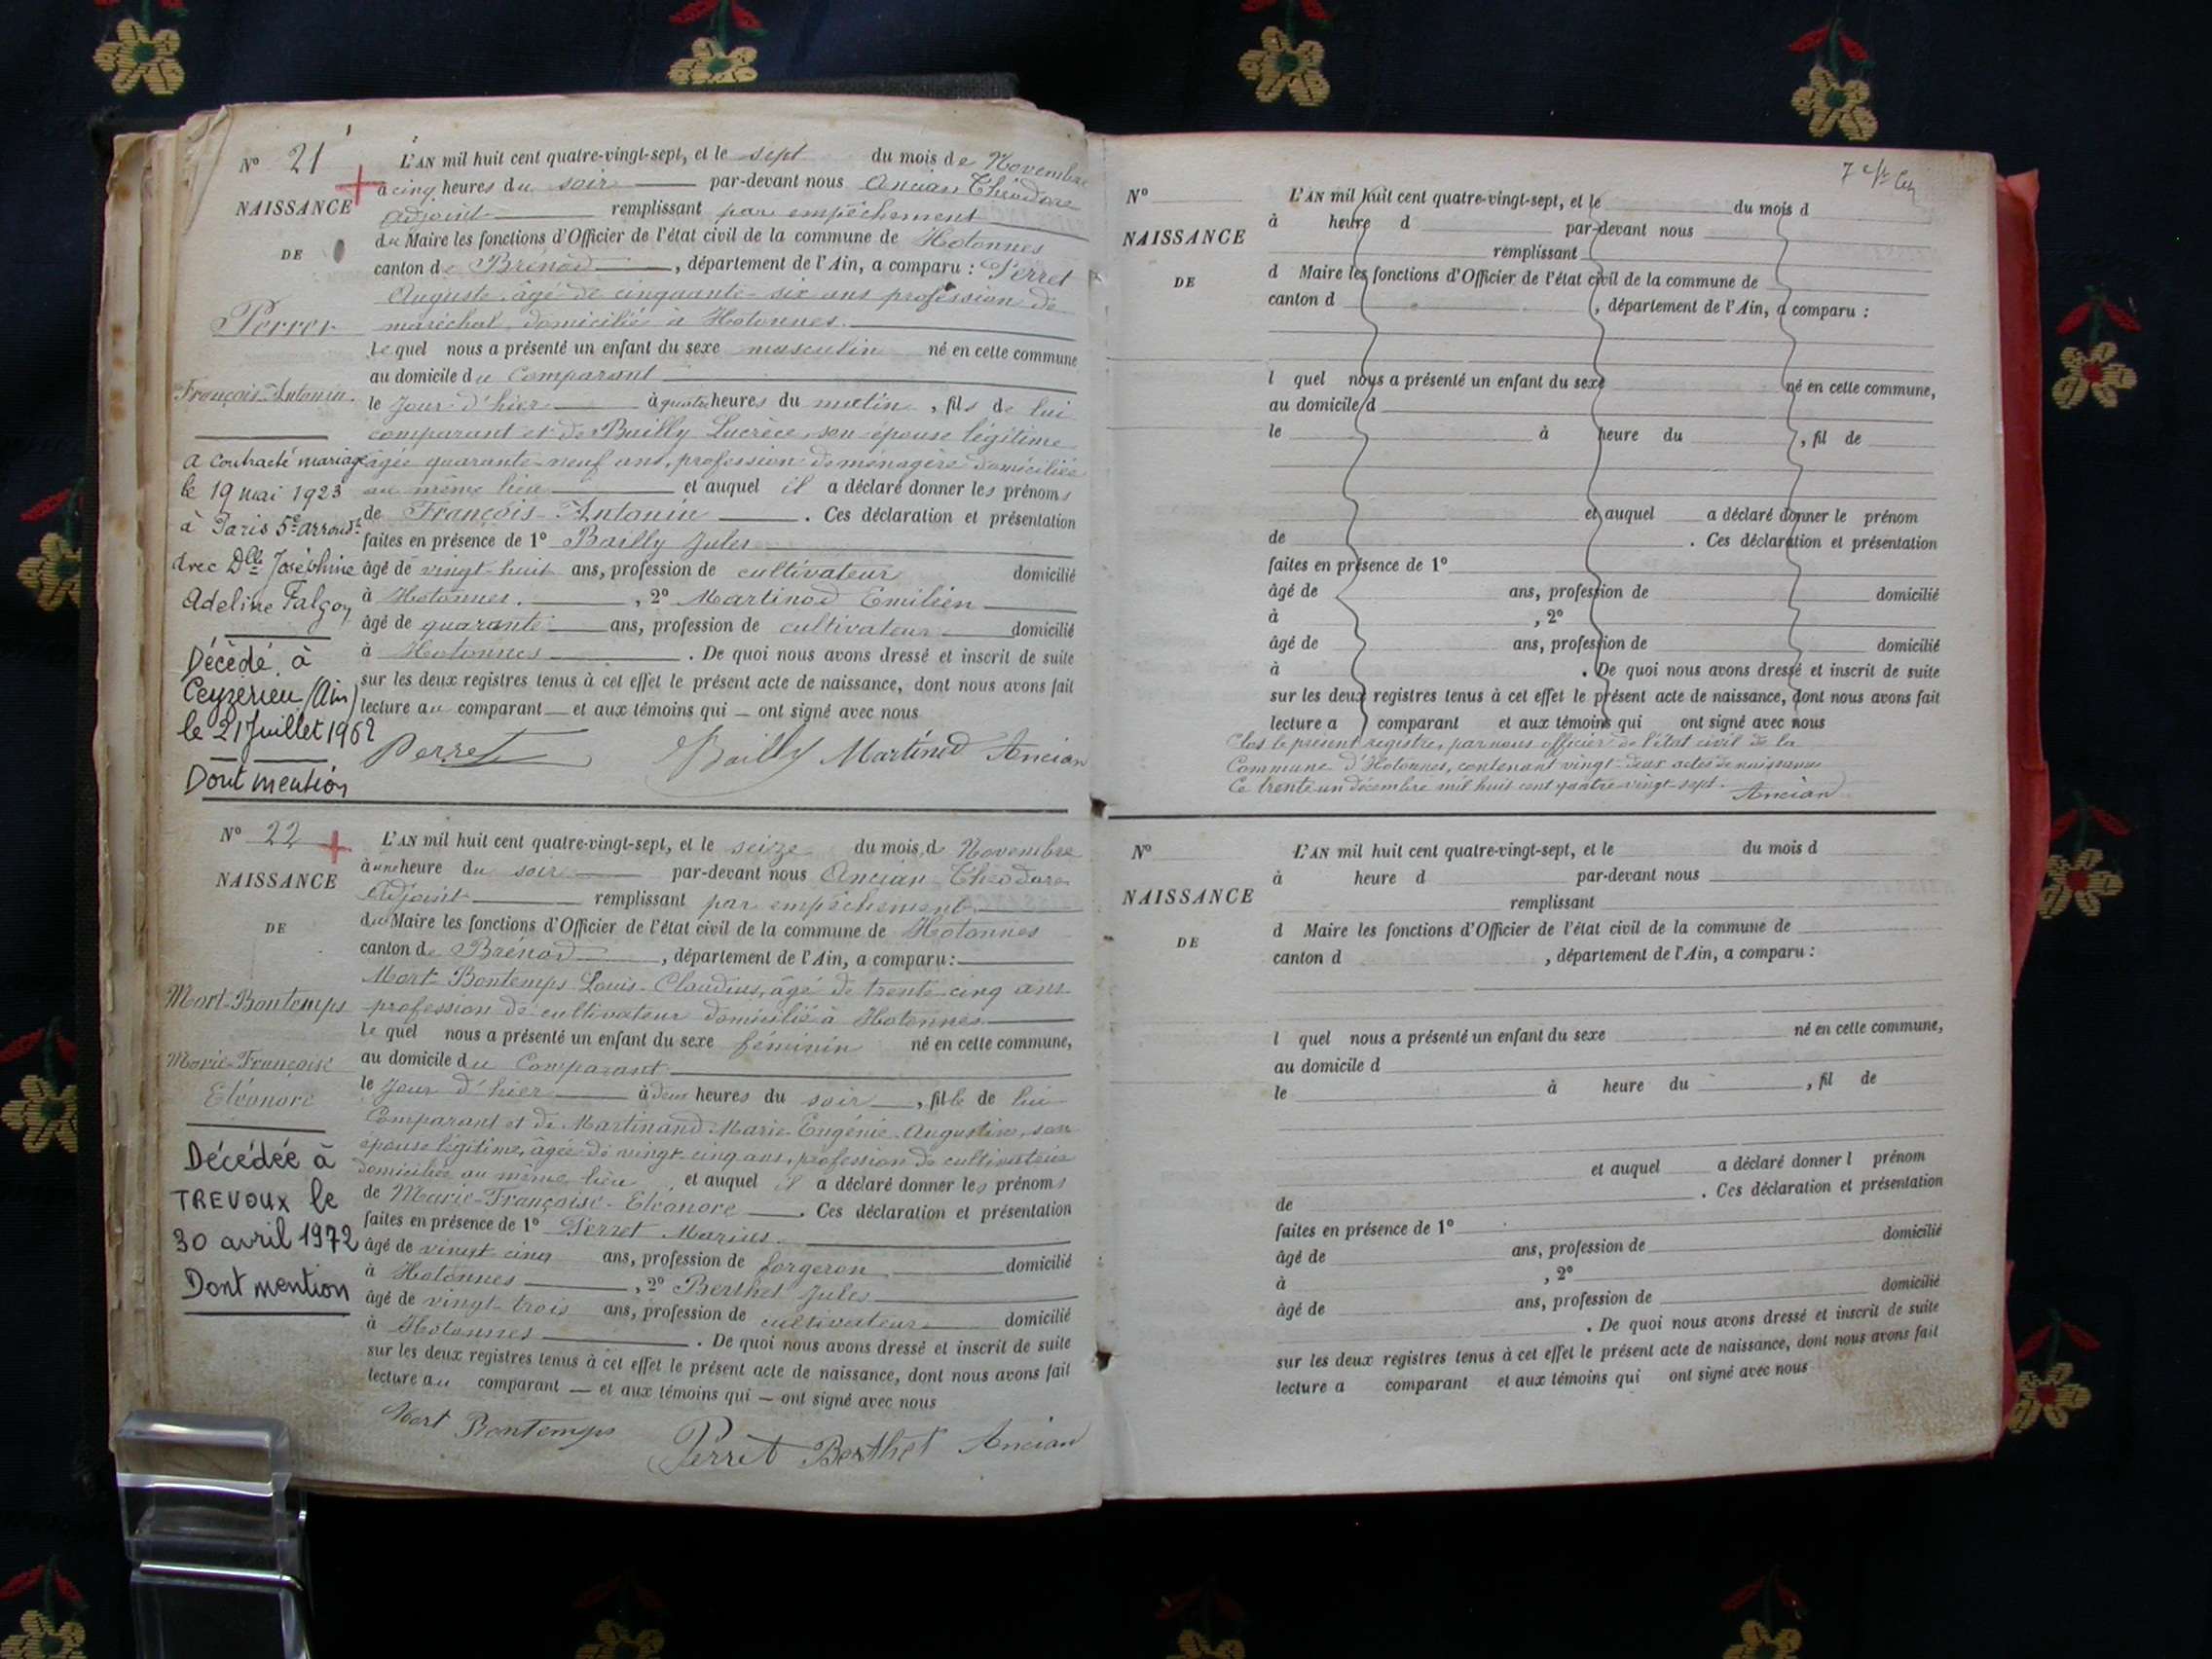 N° 21
NAISSANCE
DE
Perret
François-Antonin.
a contracté mariage
le 19 mai 1923
à Paris 5e arrondt
avec Dlle Joséphine
Adeline Falgoy
Décédé à
Ceyzérieu (Ain)
le 21 Juillet 1962
Dont mention
L'AN mil huit cent quatre-vingt-sept, et le sept du mois de Novembre
à cinq heures du soir par-devant nous Ancian Théodore
Adjoint remplissant par empêchement
du Maire les fonctions d'Officier de l'état civil de la commune de Hotonnes
canton de Brénod, département de l'Ain, a comparu : Perret
Auguste, âgé de cinquante-six ans profession de
maréchal, domicilié à Hotonnes.
lequel nous a présenté un enfant du sexe masculin né en cette commune
au domicile du Comparant
le Jour d'hier à quatre heures du matin, fils de lui
comparant et de Bailly Lucrèce, son épouse légitime
âgée quarante-neuf ans, profession de ménagère domiciliée
au même lieu et auquel il a déclaré donner les prénoms
de François Antonin. Ces déclaration et présentation
faites en présence de 1° Bailly Jules
âgé de vingt-huit ans, profession de cultivateur domicilié
à Hotonnes., 2° Martinod Emilien
âgé de quarante ans, profession de cultivateur domicilié
à Hotonnes. De quoi nous avons dressé et inscrit de suite
sur les deux registres tenus à cet effet le présent acte de naissance, dont nous avons fait
lecture au comparant et aux témoins qui ont signé avec nous
Perret Bailly Martinod Ancian
N° 22
NAISSANCE
DE
Mort-Bontemps
Marie-Françoise
Eléonore
Décédée à
TREVOUX le
30 avril 1972
Dont mention
L'AN mil huit cent quatre-vingt-sept, et le seize du mois de Novembre
à une heure du soir par-devant nous Ancian Théodore
Adjoint remplissant par empêchement
du Maire les fonctions d'Officier de l'état civil de la commune de Hotonnes
canton de Brénod, département de l'Ain, a comparu :
Mort-Bontemps Louis-Claudius, âgé de trente-cinq ans
profession de cultivateur domicilié à Hotonnes
lequel nous a présenté un enfant du sexe féminin né en cette commune,
au domicile du Comparant
le Jour d'hier à deux heures du soir, fille de lui
Comparant et de Martinand Marie-Eugénie-Augustine, son
épouse légitime, âgée de vingt-cinq ans, profession de cultivateur
domiciliée au même lieu et auquel il a déclaré donner les prénoms
de Marie-Françoise-Eléonore. Ces déclaration et présentation
faites en présence de 1° Perret Marius.
âgé de vingt cinq ans, profession de forgeron domicilié
à Hotonnes, 2° Berthet Jules
âgé de vingt-trois ans, profession de cultivateur domicilié
à Hotonnes. De quoi nous avons dressé et inscrit de suite
sur les deux registres tenus à cet effet le présent acte de naissance, dont nous avons fait
lecture au comparant et aux témoins qui ont signé avec nous
Mort Bontemps Perret Berthet Ancian
N°
NAISSANCE
DE
L'AN mil huit cent quatre-vingt-sept, et le du mois d
à heure d par-devant nous
remplissant
d Maire les fonctions d'Officier de l'état civil de la commune de
canton d , département de l'Ain, a comparu :
l quel nous a présenté un enfant du sexe né en cette commune,
au domicile d
le à heure du , fil de
et auquel a déclaré donner le prénom
de . Ces déclaration et présentation
faites en présence de 1°
âgé de ans, profession de domicilié
à , 2°
âgé de ans, profession de domicilié
à . De quoi nous avons dressé et inscrit de suite
sur les deux registres tenus à cet effet le présent acte de naissance, dont nous avons fait
lecture a comparant et aux témoins qui ont signé avec nous
Clos le présent registre, par nous officier de l'état civil de la
Commune d'Hotonnes, contenant vingt-deux actes de naissances
Ce trente-un décembre mil huit cent quatre-vingt-sept. Ancian
N°
NAISSANCE
DE
L'AN mil huit cent quatre-vingt-sept, et le du mois d
à heure d par-devant nous
remplissant
d Maire les fonctions d'Officier de l'état civil de la commune de
canton d , département de l'Ain, a comparu :
l quel nous a présenté un enfant du sexe né en cette commune,
au domicile d
le à heure du , fil de
et auquel a déclaré donner l prénom
de . Ces déclaration et présentation
faites en présence de 1°
âgé de ans, profession de domicilié
à , 2°
âgé de ans, profession de domicilié
. De quoi nous avons dressé et inscrit de suite
sur les deux registres tenus à cet effet le présent acte de naissance, dont nous avons fait
lecture a comparant et aux témoins qui ont signé avec nous